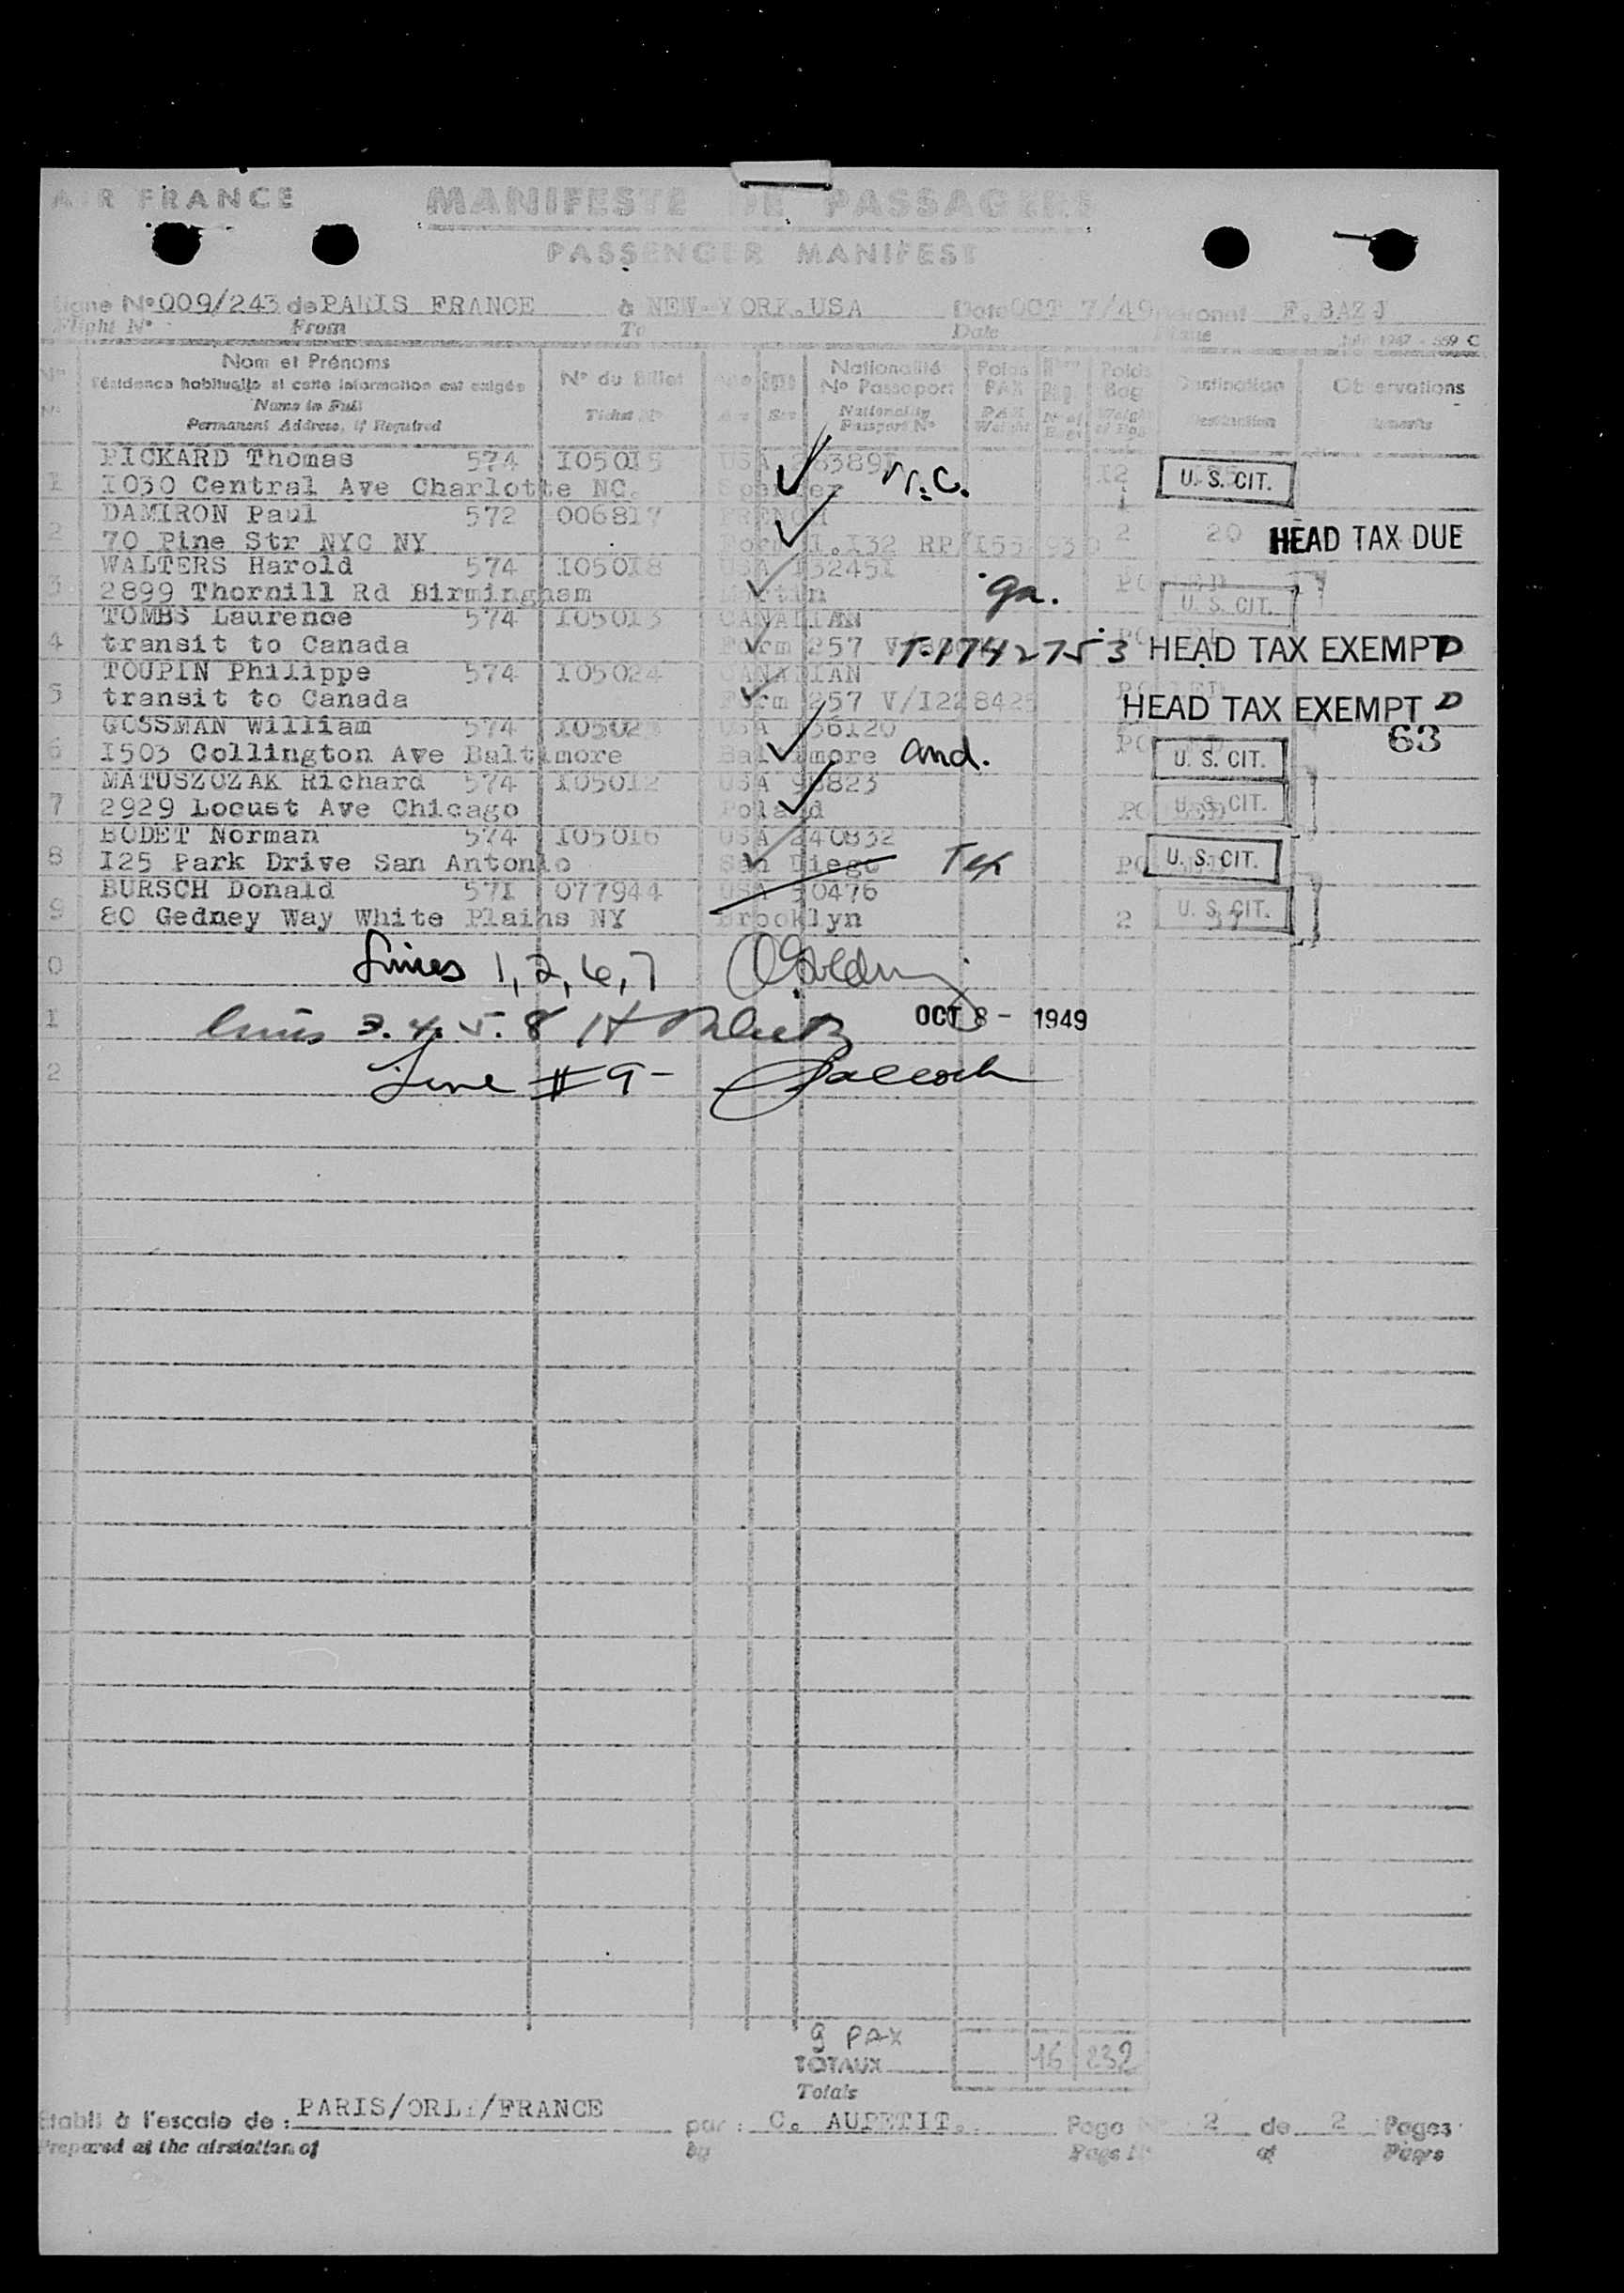 AIR FRANCE MANIFESTE DE PASSAGERS
PASSENGER MANIFEST
Ligne No 009/243 de PARIS FRANCE à NEW-YORK.USA Date OCT 7/49 F.BAZJ
Flight No From To Date
Nom et Prénoms
Résidence habituelle si cette information est exigée
Name in Full
Permanent Address, if Required
No du Billet
Ticket No
Age Sexe
Age Sex
Nationalité
No Passeport
Nationality
Passport No
Poids PAX
PAX Weight
Poids Bag
Weight of Bag
Destination
Destination
Observations
Remarks
1 PICKARD Thomas 574 I05015 USA
I030 Central Ave Charlotte NC. Spencer N.C. I2 U.S.CIT.
2 DAMIRON Paul 572 006817 FRENCH
70 Pine Str NYC NY Form I.I32 2 20 HEAD TAX DUE
3 WALTERS Harold 574 I05018 USA I32451
2899 Thornill Rd Birmingham Martin ga. U.S.CIT.
4 TOMBS Laurence 574 I05013 CANADIAN
transit to Canada Form 257 1742753 HEAD TAX EXEMPT D
5 TOUPIN Philippe 574 I05024 CANADIAN
transit to Canada Form 257 V/I228425 HEAD TAX EXEMPT D
6 GOSSMAN William 574 USA I36120 63
I503 Collington Ave Baltimore Baltimore and. U.S.CIT.
7 MATUSZOZAK Richard 574 I05012 USA
2929 Locust Ave Chicago Poland U.S.CIT.
8 BODET Norman 574 I05016 USA 240832
I25 Park Drive San Antonio San Diego Tex U.S.CIT.
9 BURSCH Donald 57I 077944 USA 30476
80 Gedney Way White Plains NY Brooklyn 2 37 U.S.CIT.
0 Lines 1,2,6,7
1 lines 3.4.5.8 OCT 8 - 1949
2 Line #9-
9 PAX
TOTAUX 16 232
Totals
Etabli à l'escale de : PARIS/ORLY/FRANCE par : C. AUPETIT. Page No 2 de 2 Pages
Prepared at the airstation of by Page No of Pages